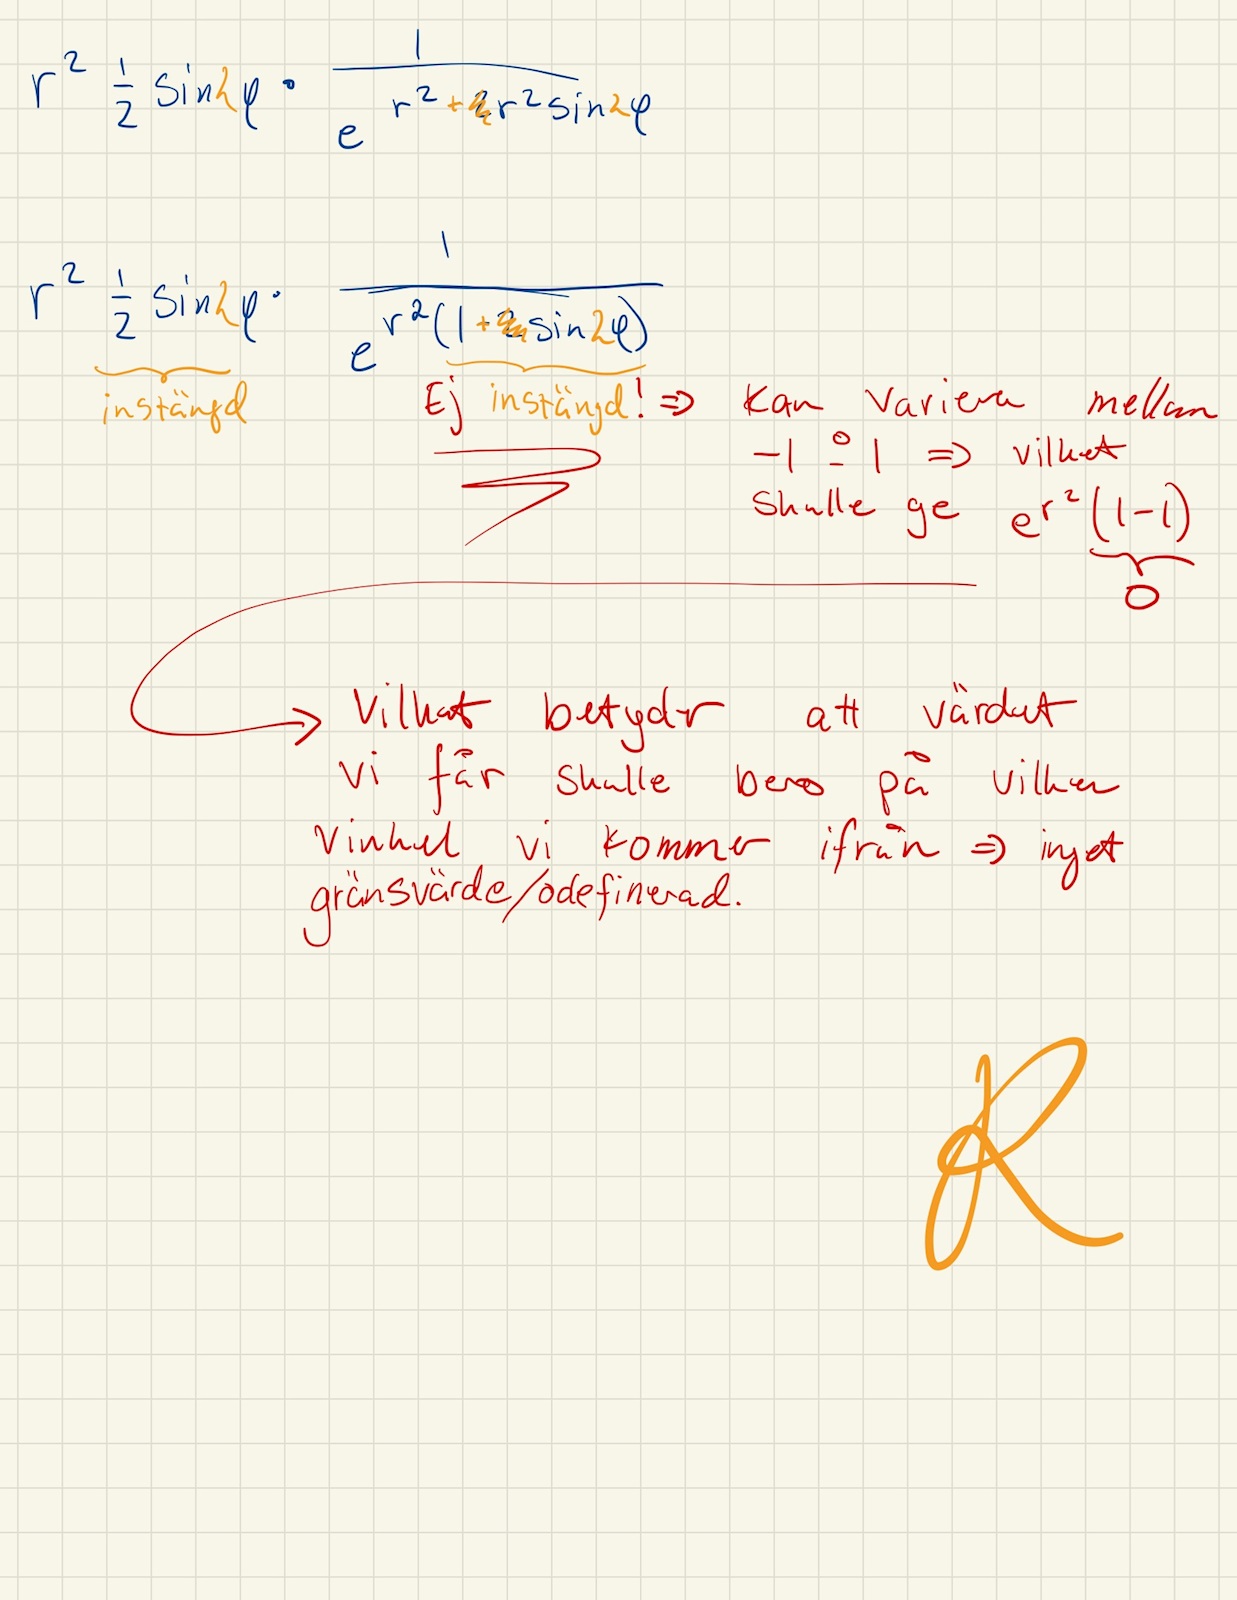 r² 1/2 sin2φ · 1/e^(r²+r²sin2φ)
r² 1/2 sin2φ · 1/e^(r²(1+sin2φ))
instängd
Ej instängd! ⇒ kan variera mellan
-1 & 1 ⇒ vilket
skulle ge e^r²(1-1)
0
Vilket betyder att värdet
vi får skulle bero på vilken
vinkel vi kommer ifrån ⇒ inget
gränsvärde/odefinerad.
R